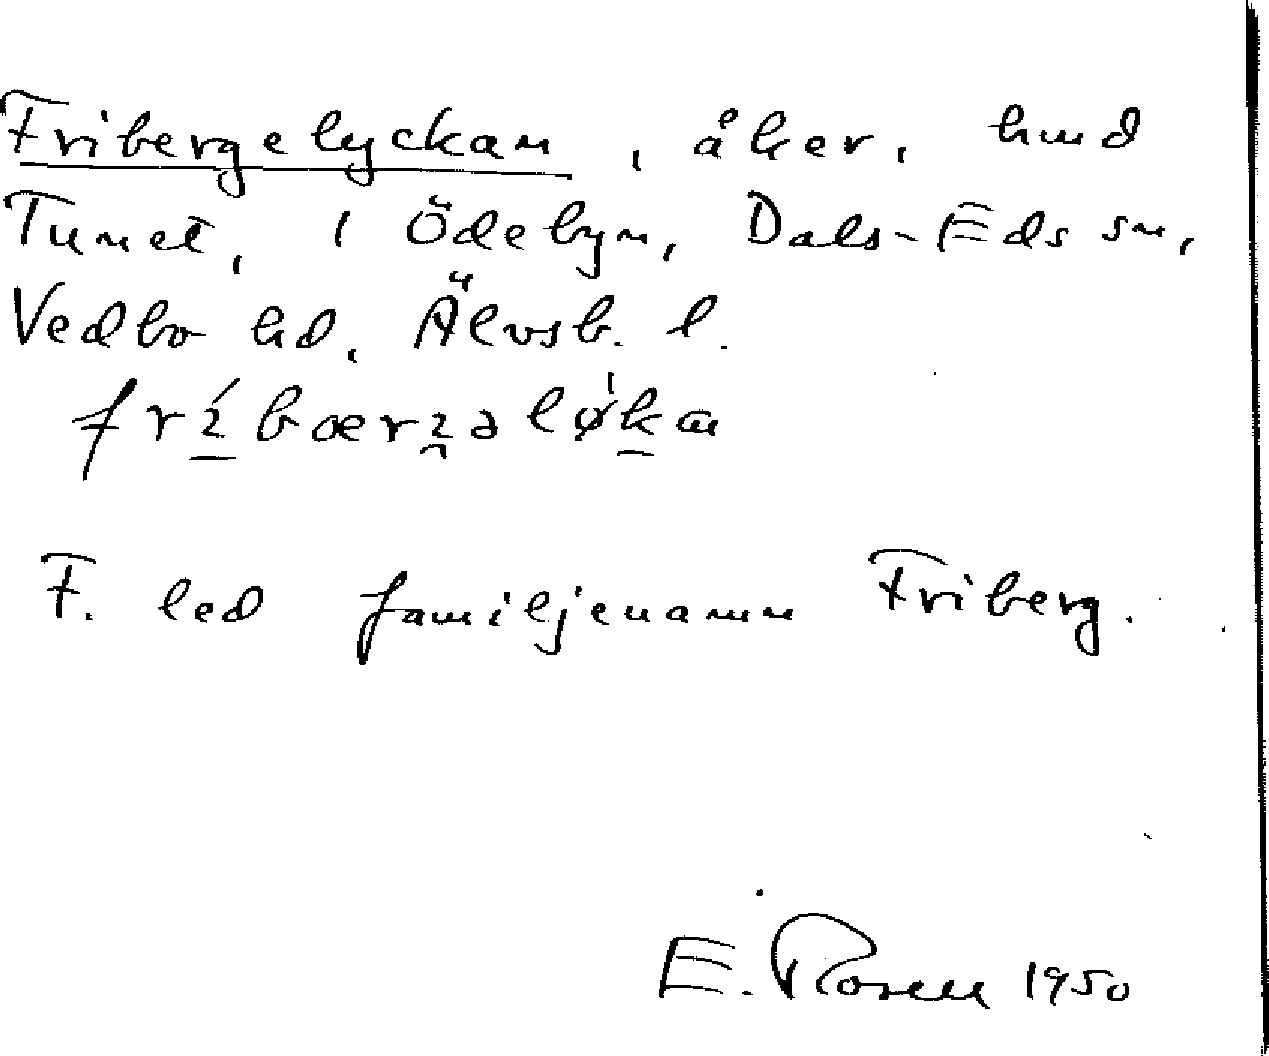 Fribergelyckan, åker, hmd
Tunet, 1 Ödebyn, Dals-Eds sn,
Vedbo hd, Älvsb. l.
F. led familjenamn Friberg.
E. Rosen 1950